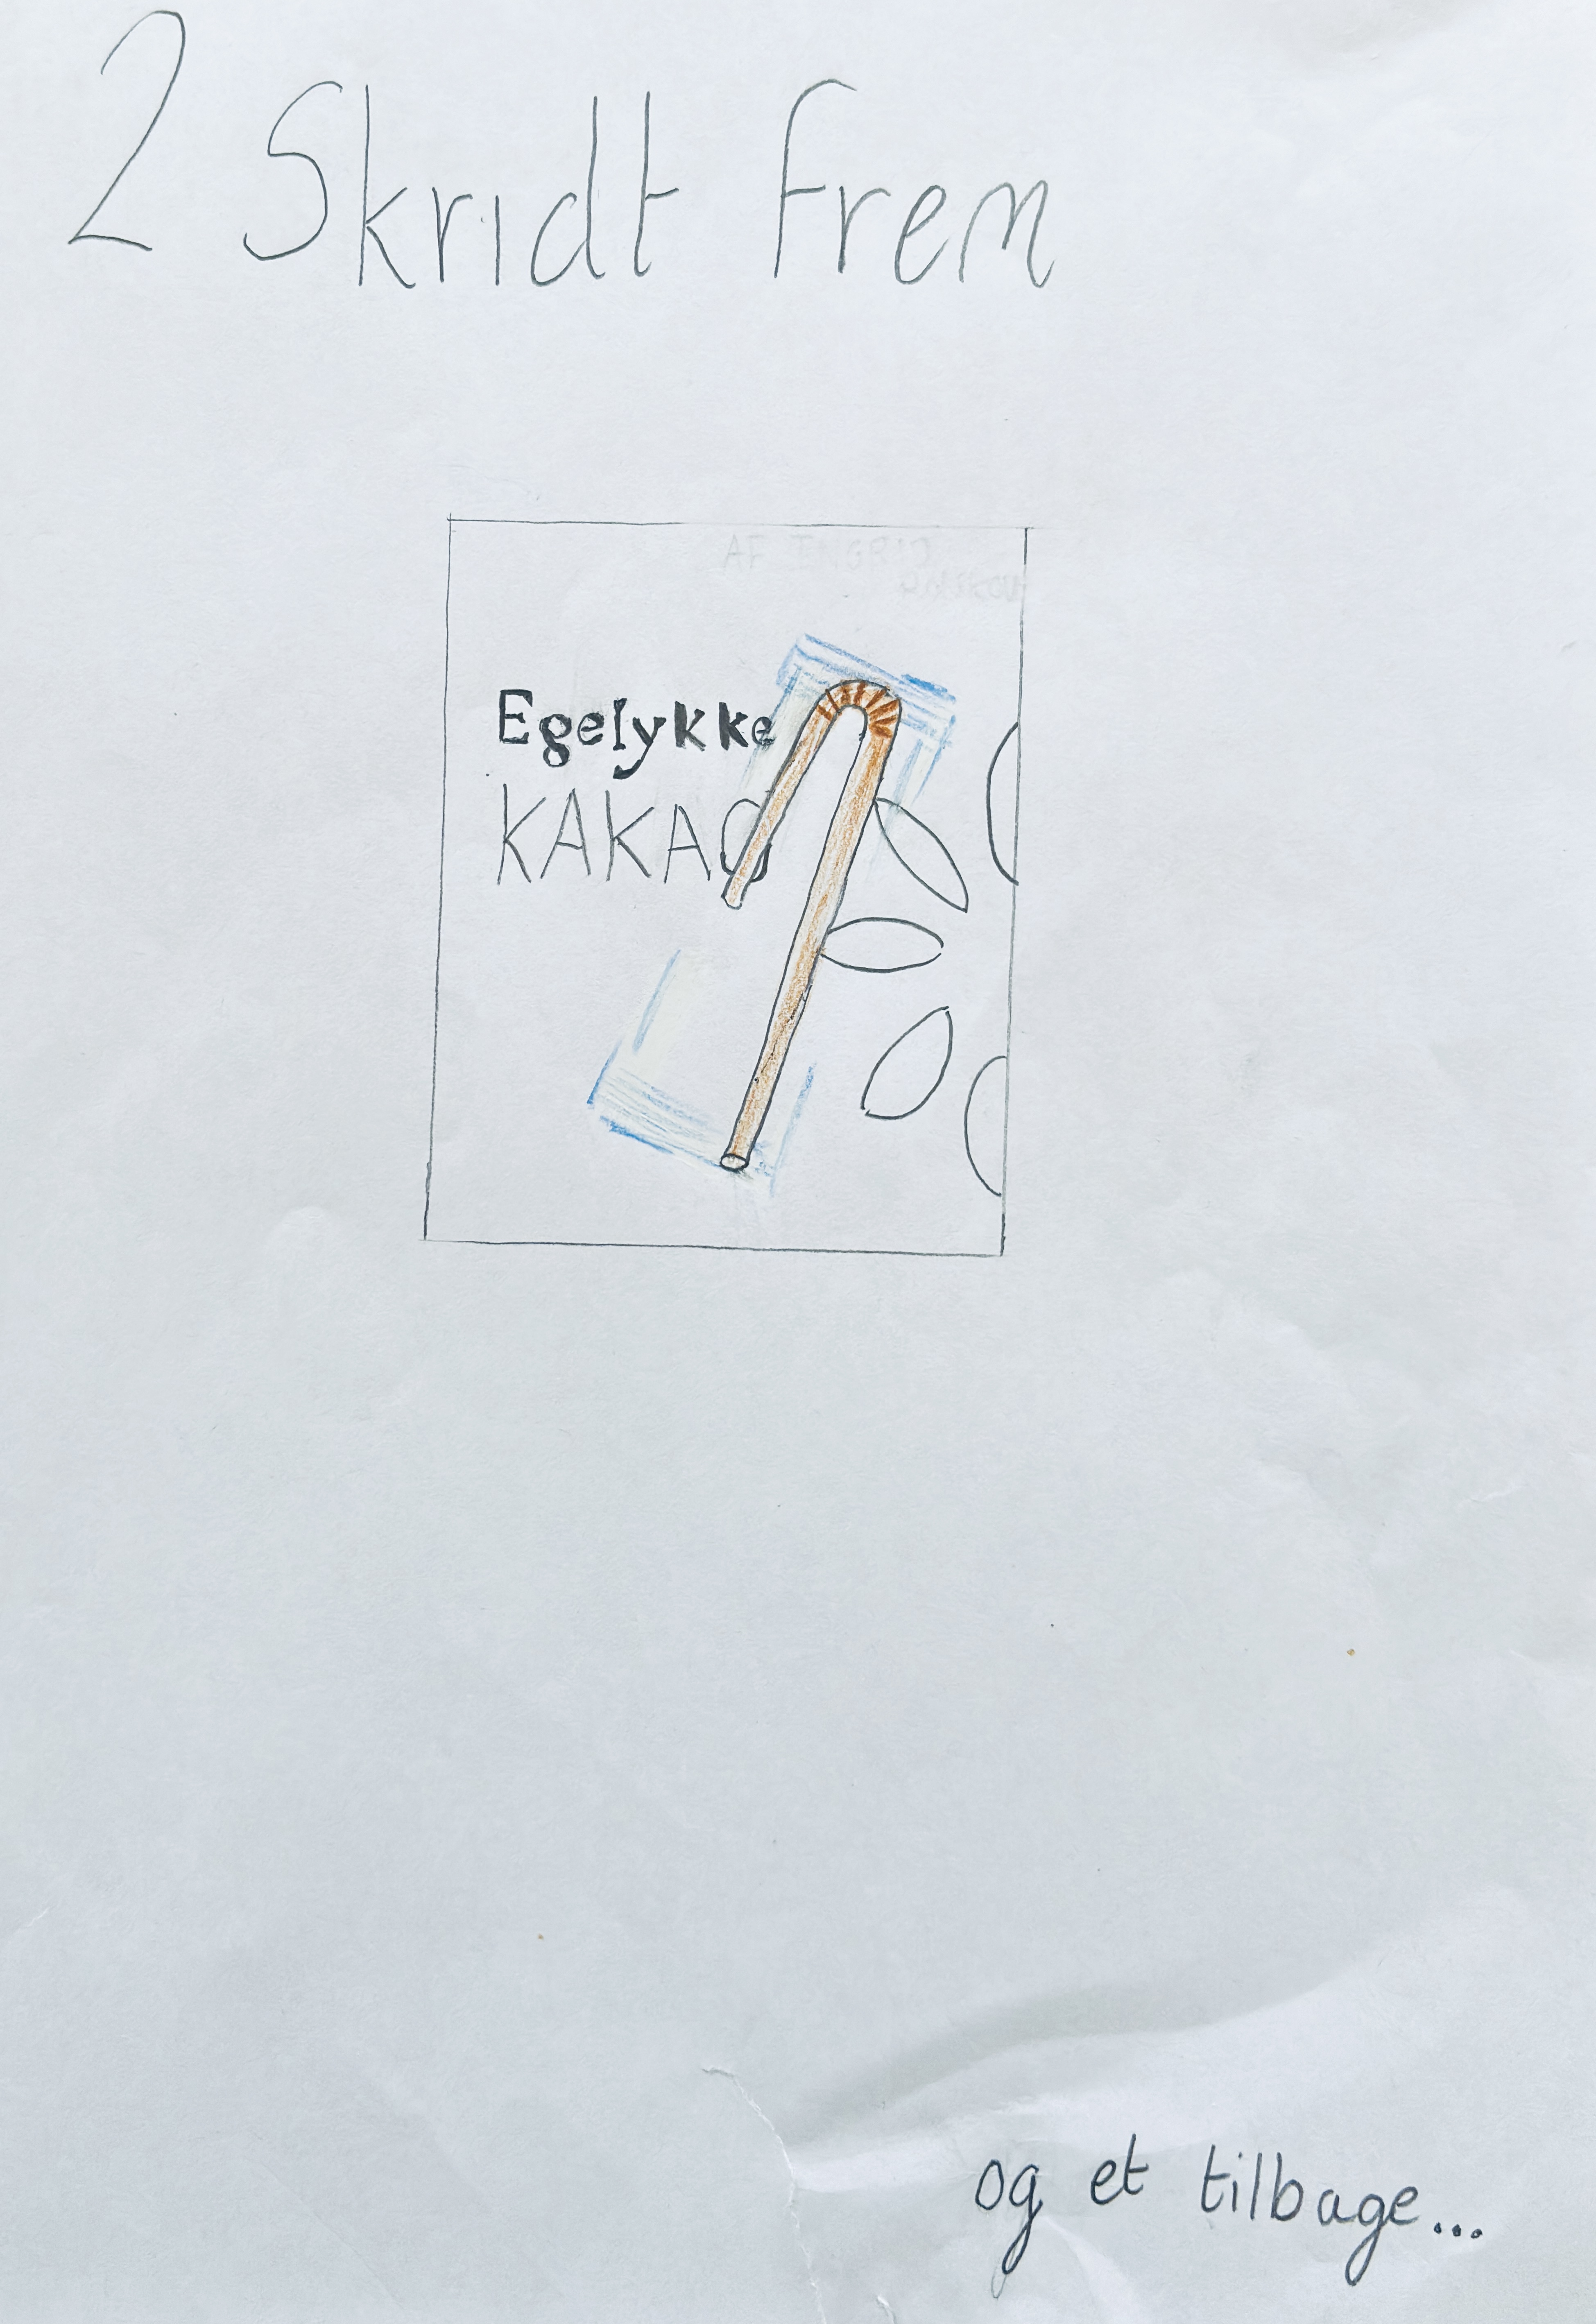 2 Skridt Frem
AF INGRID
Egelykke
KAKAO
og et tilbage...